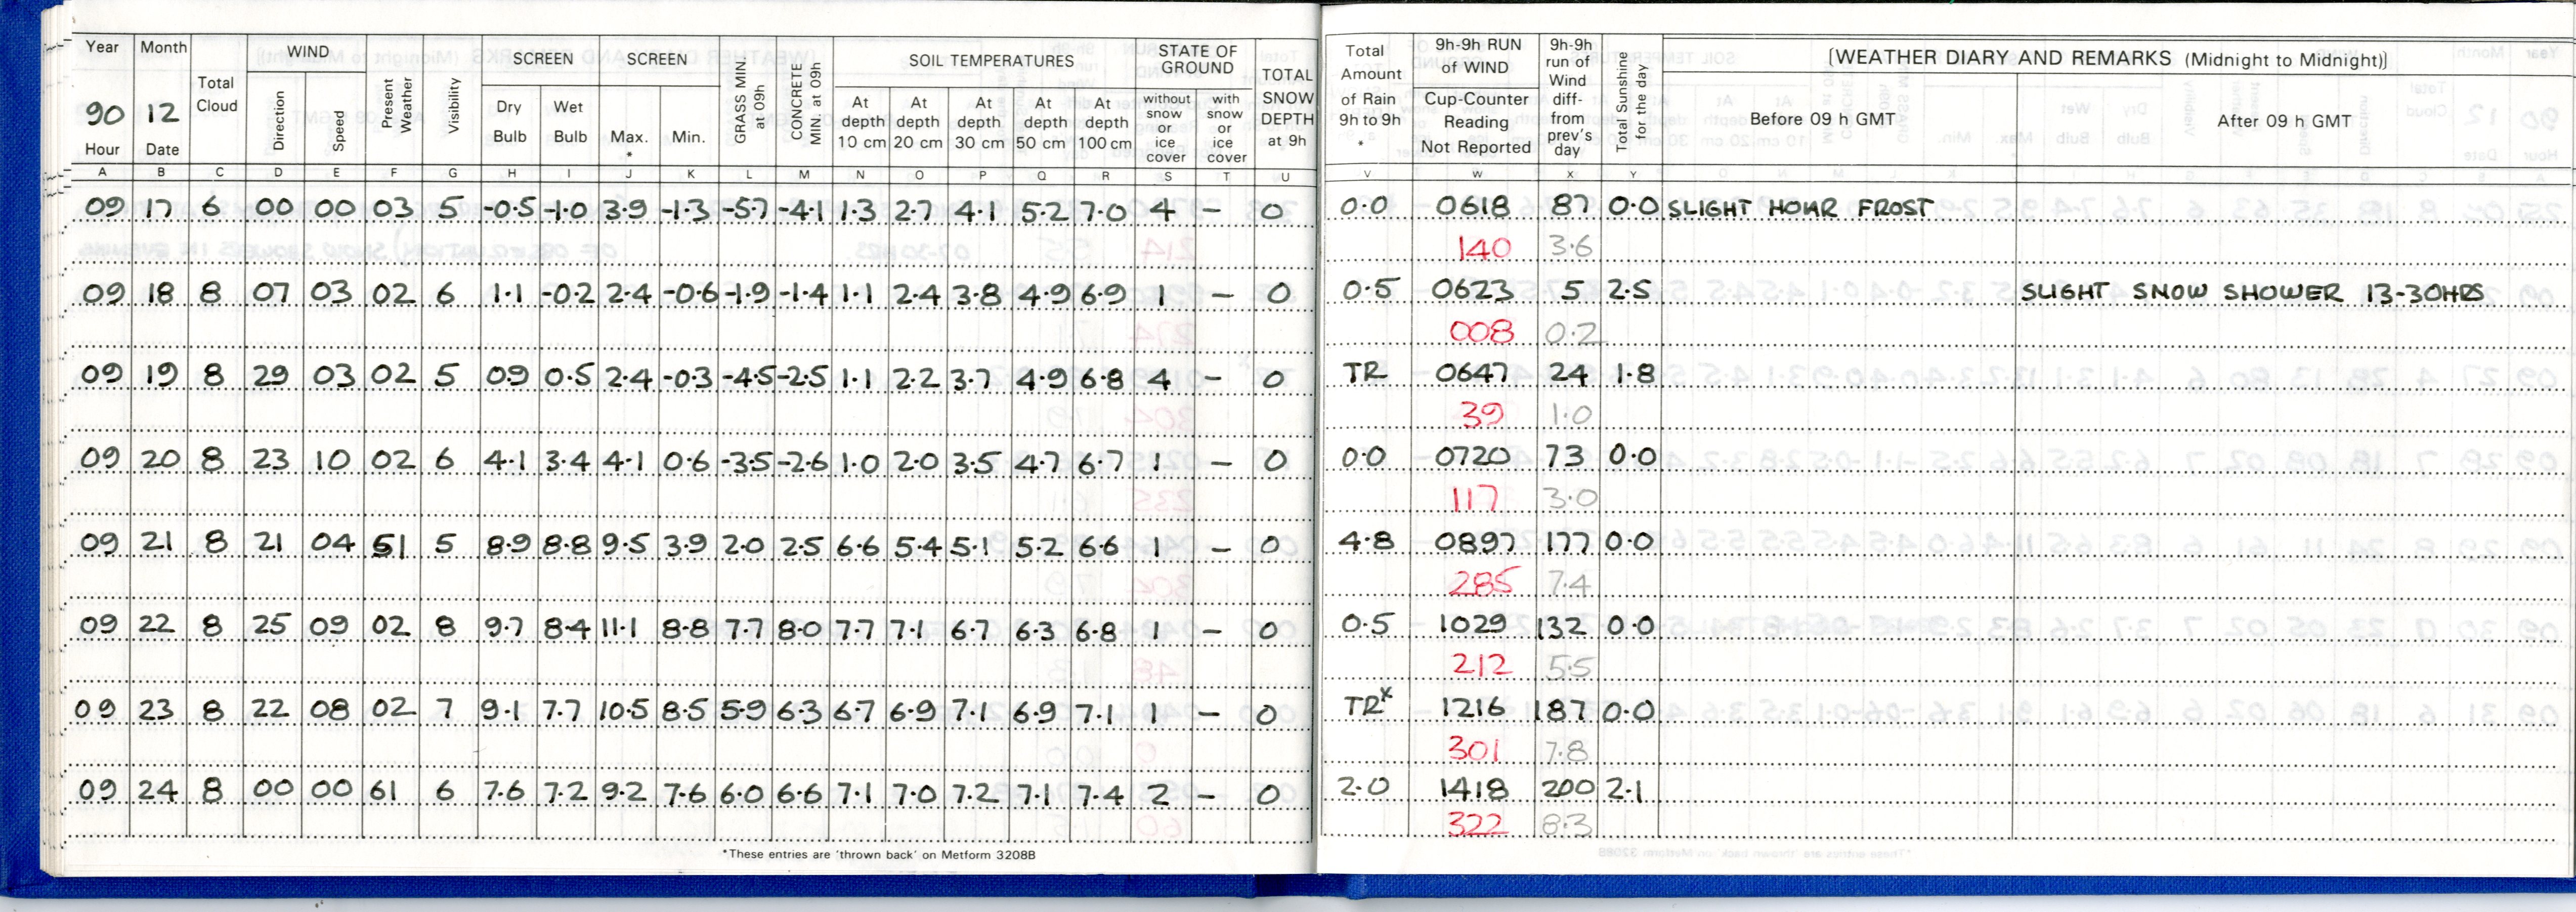 Year Month Total Cloud WIND Present Weather Visibility SCREEN SCREEN GRASS MIN. at 09h CONCRETE MIN. at 09h SOIL TEMPERATURES STATE OF GROUND TOTAL SNOW DEPTH at 9h Total Amount of Rain 9h to 9h * 9h-9h RUN of WIND 9h-9h run of Wind diff- from prev's day Total Sunshine for the day [WEATHER DIARY AND REMARKS (Midnight to Midnight)]
90 12 Direction Speed Dry Bulb Wet Bulb Max. * Min. At depth 10 cm At depth 20 cm At depth 30 cm At depth 50 cm At depth 100 cm without snow or ice cover with snow or ice cover Cup-Counter Reading Not Reported Before 09 h GMT After 09 h GMT
Hour Date
A B C D E F G H I J K L M N O P Q R S T U V W X Y
09 17 6 00 00 03 5 -0.5 -1.0 3.9 -1.3 -5.7 -4.1 1.3 2.7 4.1 5.2 7.0 4 - 0 0.0 0618 87 0.0 SLIGHT HOAR FROST
140 3.6
09 18 8 07 03 02 6 1.1 -0.2 2.4 -0.6 -1.9 -1.4 1.1 2.4 3.8 4.9 6.9 1 - 0 0.5 0623 5 2.5 SLIGHT SNOW SHOWER 13-30HRS
008 0.2
09 19 8 29 03 02 5 0.9 0.5 2.4 -0.3 -4.5 -2.5 1.1 2.2 3.7 4.9 6.8 4 - 0 TR 0647 24 1.8
39 1.0
09 20 8 23 10 02 6 4.1 3.4 4.1 0.6 -3.5 -2.6 1.0 2.0 3.5 4.7 6.7 1 - 0 0.0 0720 73 0.0
117 3.0
09 21 8 21 04 51 5 8.9 8.8 9.5 3.9 2.0 2.5 6.6 5.4 5.1 5.2 6.6 1 - 0 4.8 0897 177 0.0
285 7.4
09 22 8 25 09 02 8 9.7 8.4 11.1 8.8 7.7 8.0 7.7 7.1 6.7 6.3 6.8 1 - 0 0.5 1029 132 0.0
212 5.5
09 23 8 22 08 02 7 9.1 7.7 10.5 8.5 5.9 6.3 6.7 6.9 7.1 6.9 7.1 1 - 0 TRx 1216 187 0.0
301 7.8
09 24 8 00 00 61 6 7.6 7.2 9.2 7.6 6.0 6.6 7.1 7.0 7.2 7.1 7.4 2 - 0 2.0 1418 200 2.1
322 8.3
*These entries are 'thrown back' on Metform 3208B